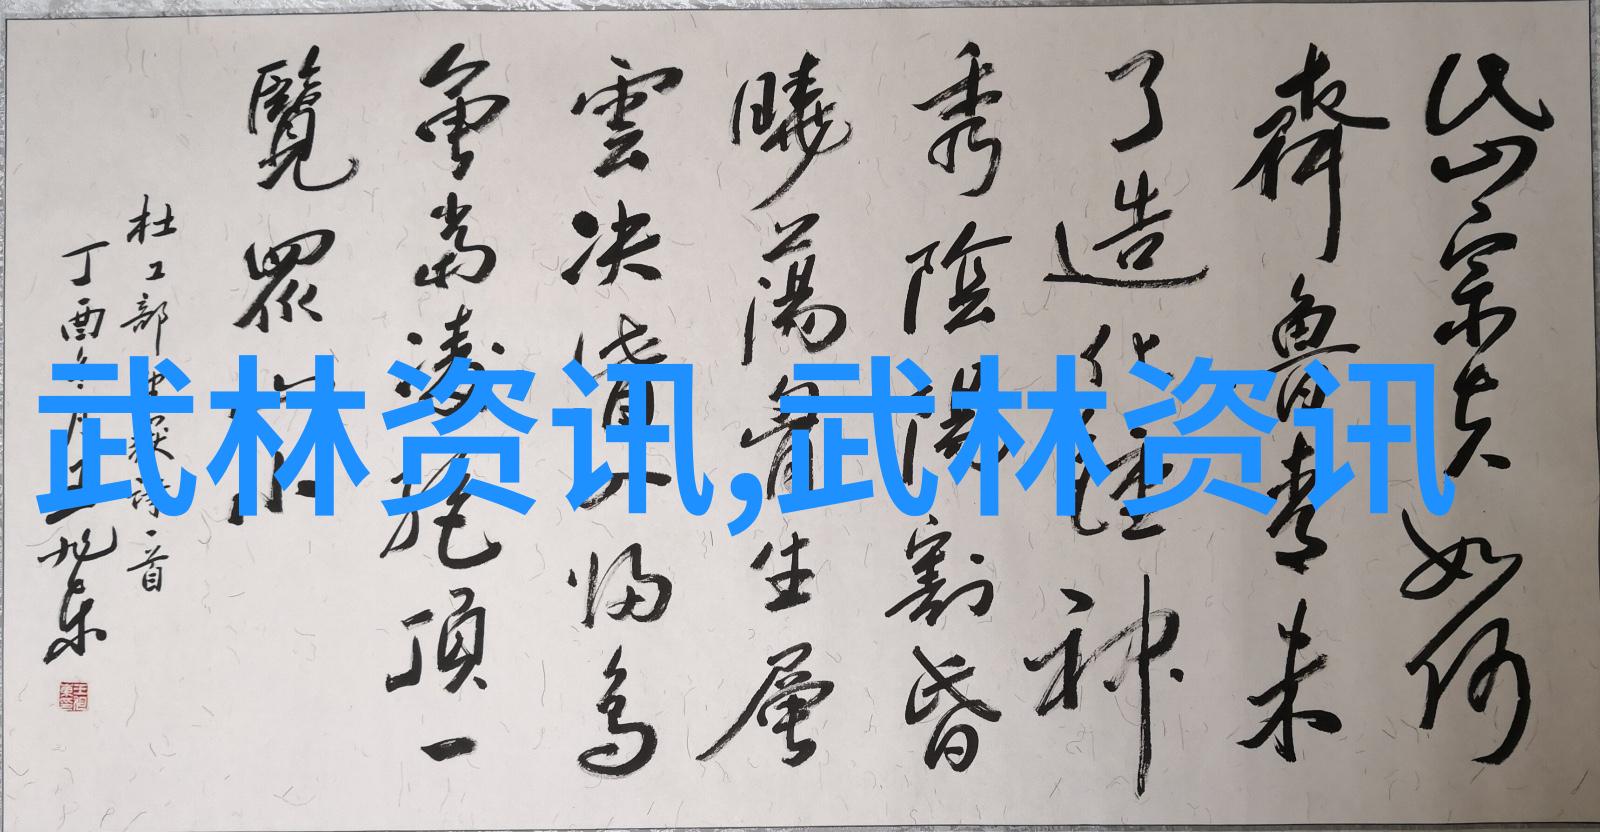 岱宗夫如何
齊魯青未
了造化鍾神
秀陰陽割昏
曉蕩胷生層
雲决眥入歸鳥
會當凌絕頂一
覽眾山小
杜工部望嶽詩一首
丁酉冬月王旭东
武林资讯,武林资讯